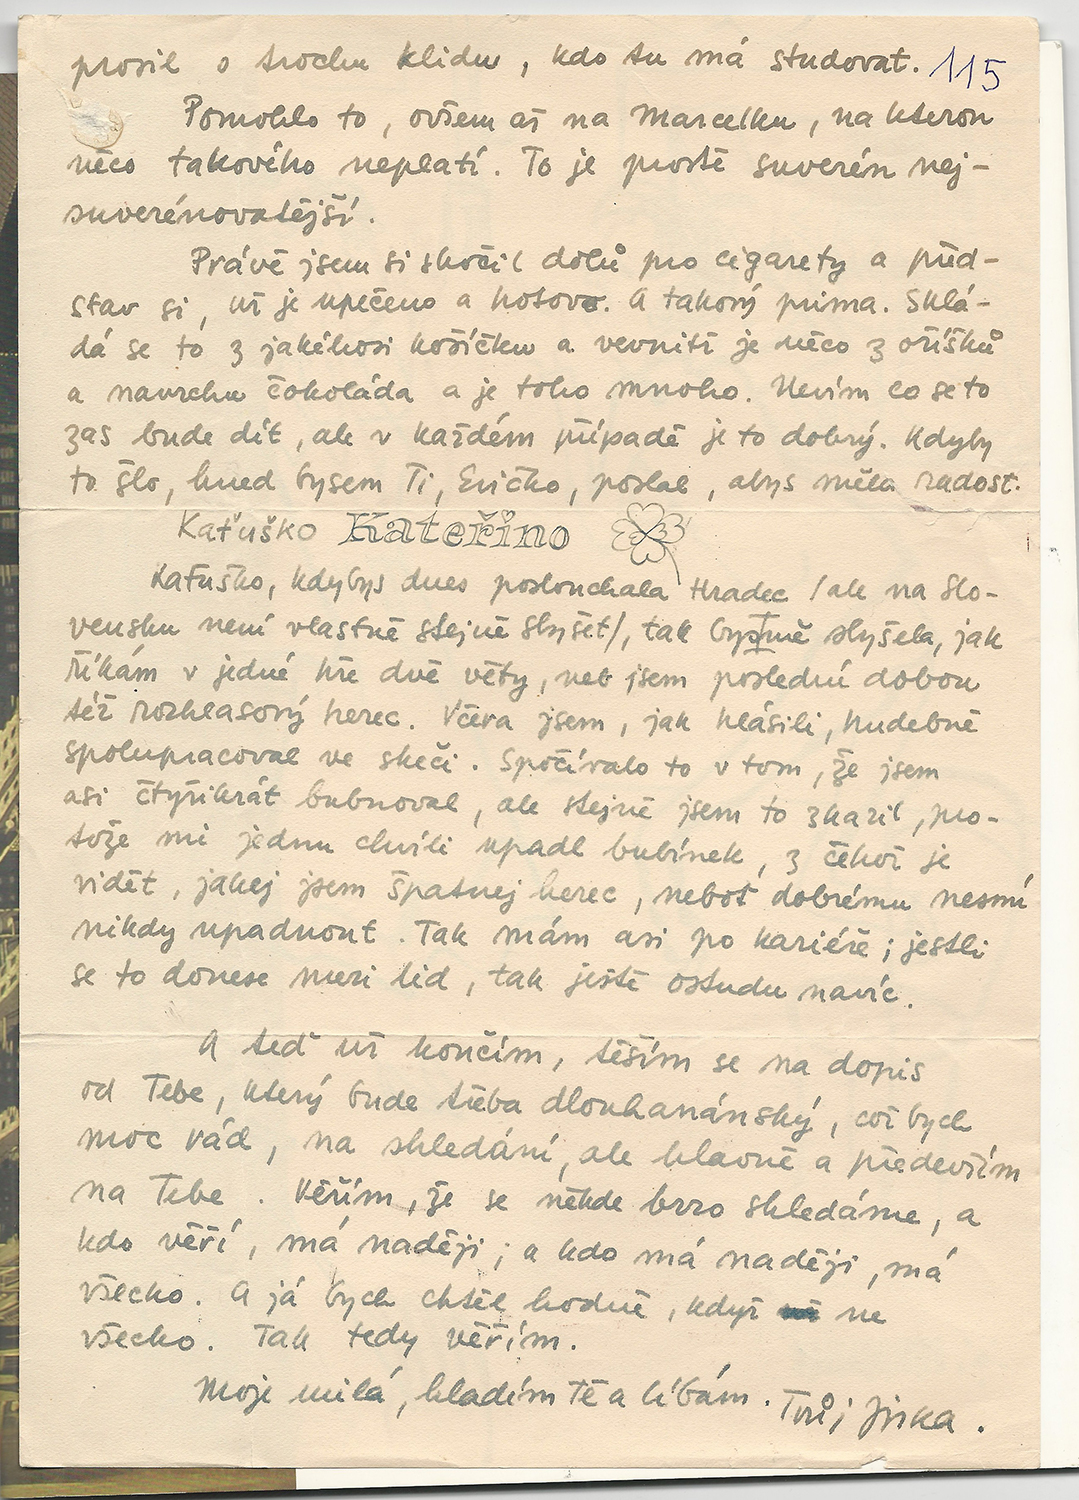 prosil o trochu klidu, kdo tu má studovat. 115
Pomohlo to, ovšem až na Marcelku, na kterou
něco takového neplatí. To je prostě suverén nej-
suverénovatější.
Právě jsem si skočil dolů pro cigarety a před-
stav si, už je upečeno a hotovo. A takový prima. Sklá-
dá se to z jakéhosi košíčku a vevnitř je něco z oříšků
a navrchu čokoláda a je toho mnoho. Nevím co se to
zas bude dít, ale v každém případě je to dobrý. Kdyby
to šlo, hned bysem Ti, Evičko, poslal, abys měla radost.
Kaťuško Kateřino
Kaťuško, kdybys dnes poslouchala Hradec /ale na Slo-
vensku není vlastně stejně slyšet/, tak bys mě slyšela, jak
říkám v jedné hře dvě věty, neb jsem poslední dobou
též rozhlasový herec. Včera jsem, jak hlásili, hudebně
spolupracoval ve skeči. Spočívalo to v tom, že jsem
asi čtyřikrát bubnoval, ale stejně jsem to zkazil, pro-
tože mi jednu chvíli upadl bubínek, z čehož je
vidět, jakej jsem špatnej herec, neboť dobrému nesmí
nikdy upadnout. Tak mám asi po kariéře; jestli
se to donese mezi lid, tak ještě ostudu navíc.
A teď už končím, těším se na dopis
od Tebe, který bude třeba dlouhanánský, což bych
moc rád, na shledání, ale hlavně a především
na Tebe. Věřím, že se někde brzo shledáme, a
kdo věří, má naději; a kdo má naději, má
všecko. A já bych chtěl hodně, když ne
všecko. Tak tedy věřím.
Moje milá, hladím Tě a líbám. Tvůj Jirka.